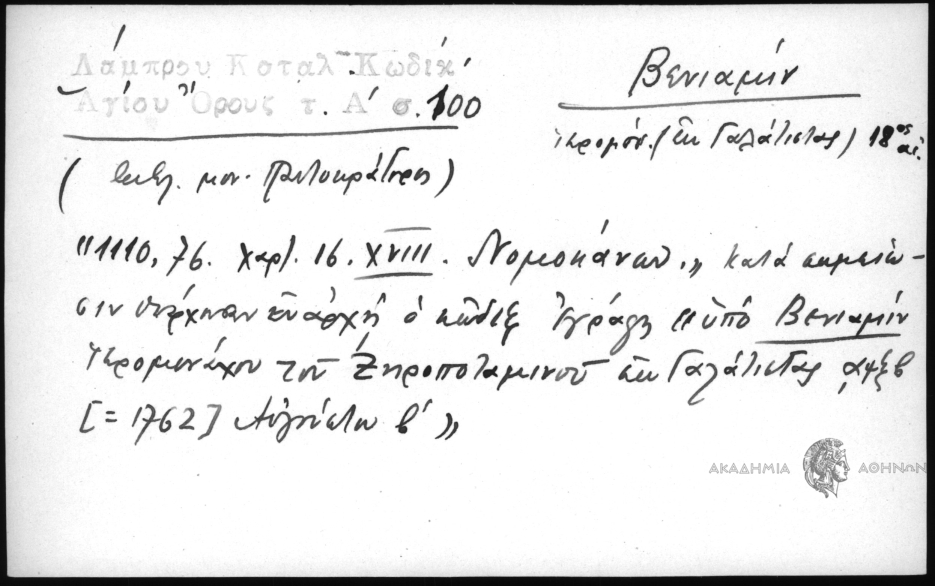 Λάμπρου Καταλ. Κωδίκ.
Ἁγίου Ὄρους τ. Α' σ. 100
Βενιαμίν
ἱερομόν. (ἐκ Γαλατίστας) 18ος αἰ.
(βιβλ. μον. Παντοκράτορος)
"1110, 76. χαρτ. 16. XVIII. Νομοκάνων." κατὰ σημείω-
σιν ἐν ἀρχῇ ὁ κῶδιξ ἐγράφη "ὑπὸ Βενιαμίν
ἱερομονάχου τοῦ Ξηροποταμινοῦ ἐκ Γαλατίστας ͵αψξβ
[=1762] Αὐγούστου β'"
ΑΚΑΔΗΜΙΑ ΑΘΗΝΩΝ